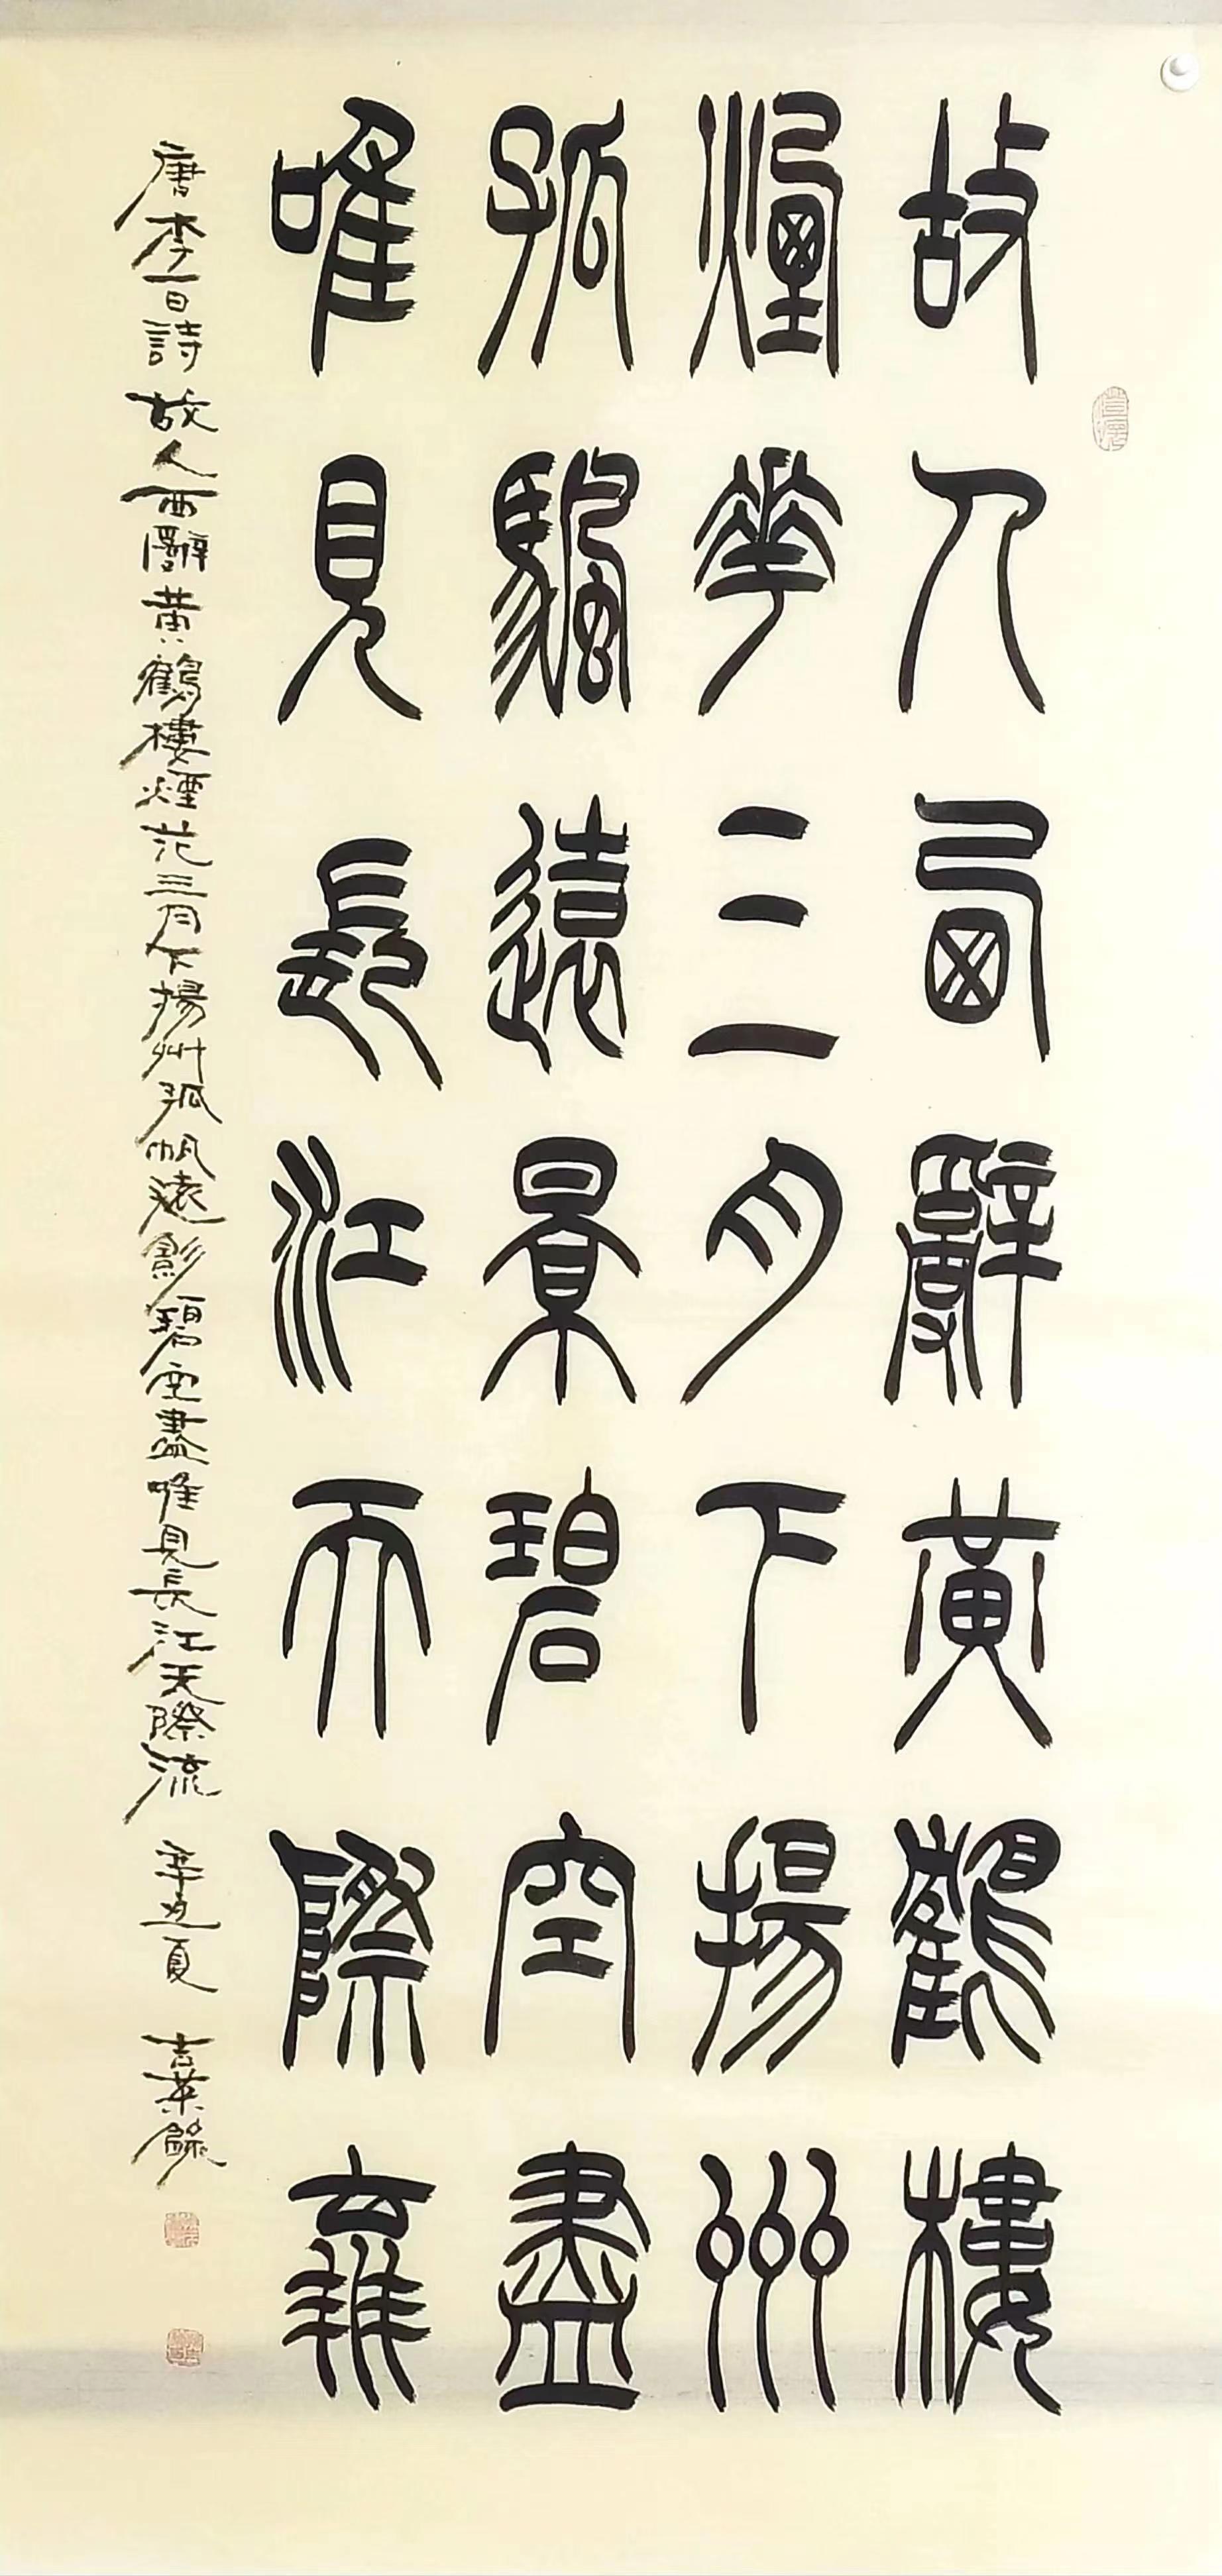 故人西辭黃鶴樓
煙華三月下揚州
孤颿遠景碧空盡
唯見長江天際流
唐李白詩故人西辭黄鶴樓煙花三月下揚州孤帆遠影碧空盡唯見長江天際流 辛丑夏